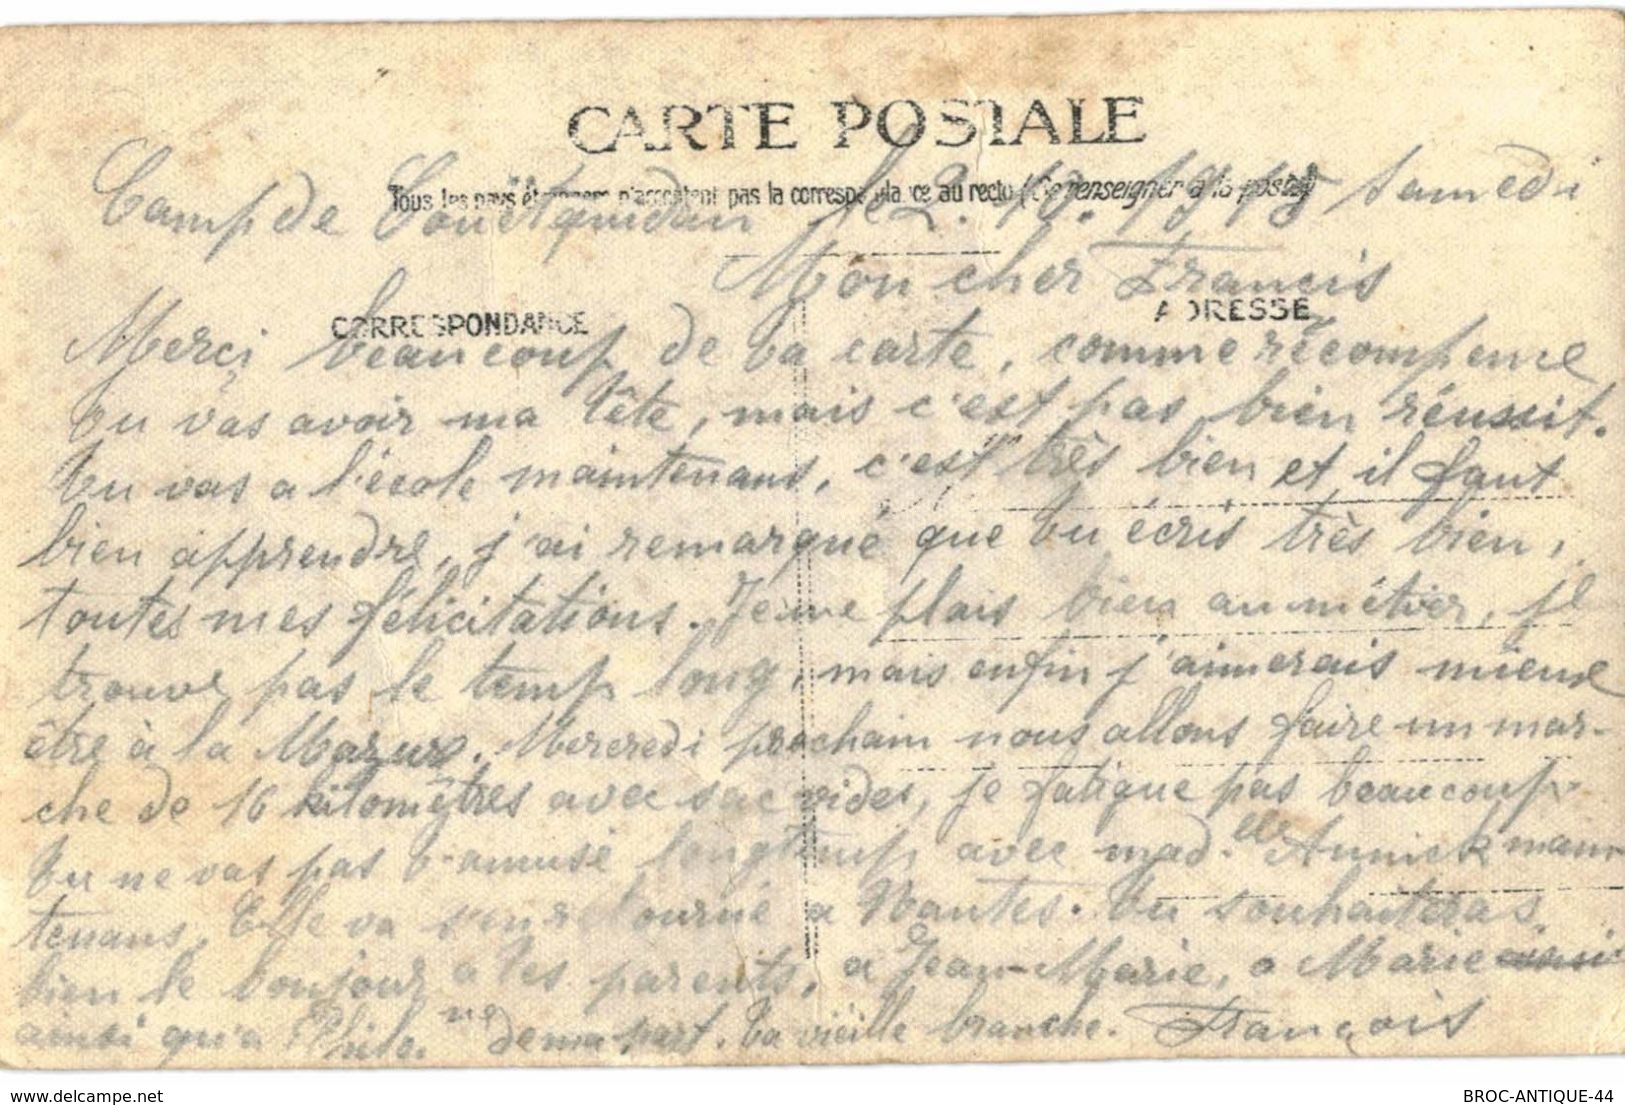 CARTE POSTALE
Tous les pays étrangers n'acceptent pas la correspondance au recto (Se renseigner à la poste)
Camp de Coëtquidan le 2. 10. 1915 Samedi
Mon cher Francis
CORRESPONDANCE
ADRESSE
Merci beaucoup de ta carte, comme récompense
tu vas avoir ma tête, mais c'est pas bien réussit.
tu vas a l'école maintenans, c'est très bien et il faut
bien apprendre, j'ai remarqué que tu écris très bien,
toutes mes félicitations. Je me plais bien au métier, je
trouve pas le temp long, mais enfin j'aimerais mieux
être à la Mazure. Mercredi prochain nous allons faire un mar-
che de 16 kilomètres avec sac vides, je fatigue pas beaucoup
tu ne vas pas t'amusé longtemp avec mad.elle Annick main
tenans, Elle va s'en retourné a Nantes. tu souhaiteras
bien le bonjour a tes parents, a Jean-Marie, a Marie
ainsi qu'a Philo.ne de ma part. ta vieille branche. François
www.delcampe.net
BROC-ANTIQUE-44